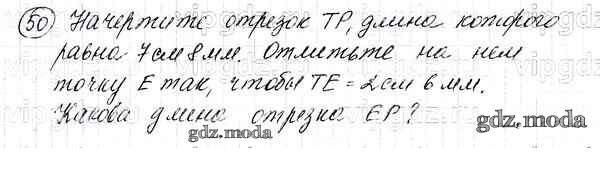 50 Начертите отрезок TP, длина которого
равна 7см 8мм. Отметьте на нем
точку E так, чтобы TE = 2см 6мм.
Какова длина отрезка EP?
gdz.moda
gdz.moda